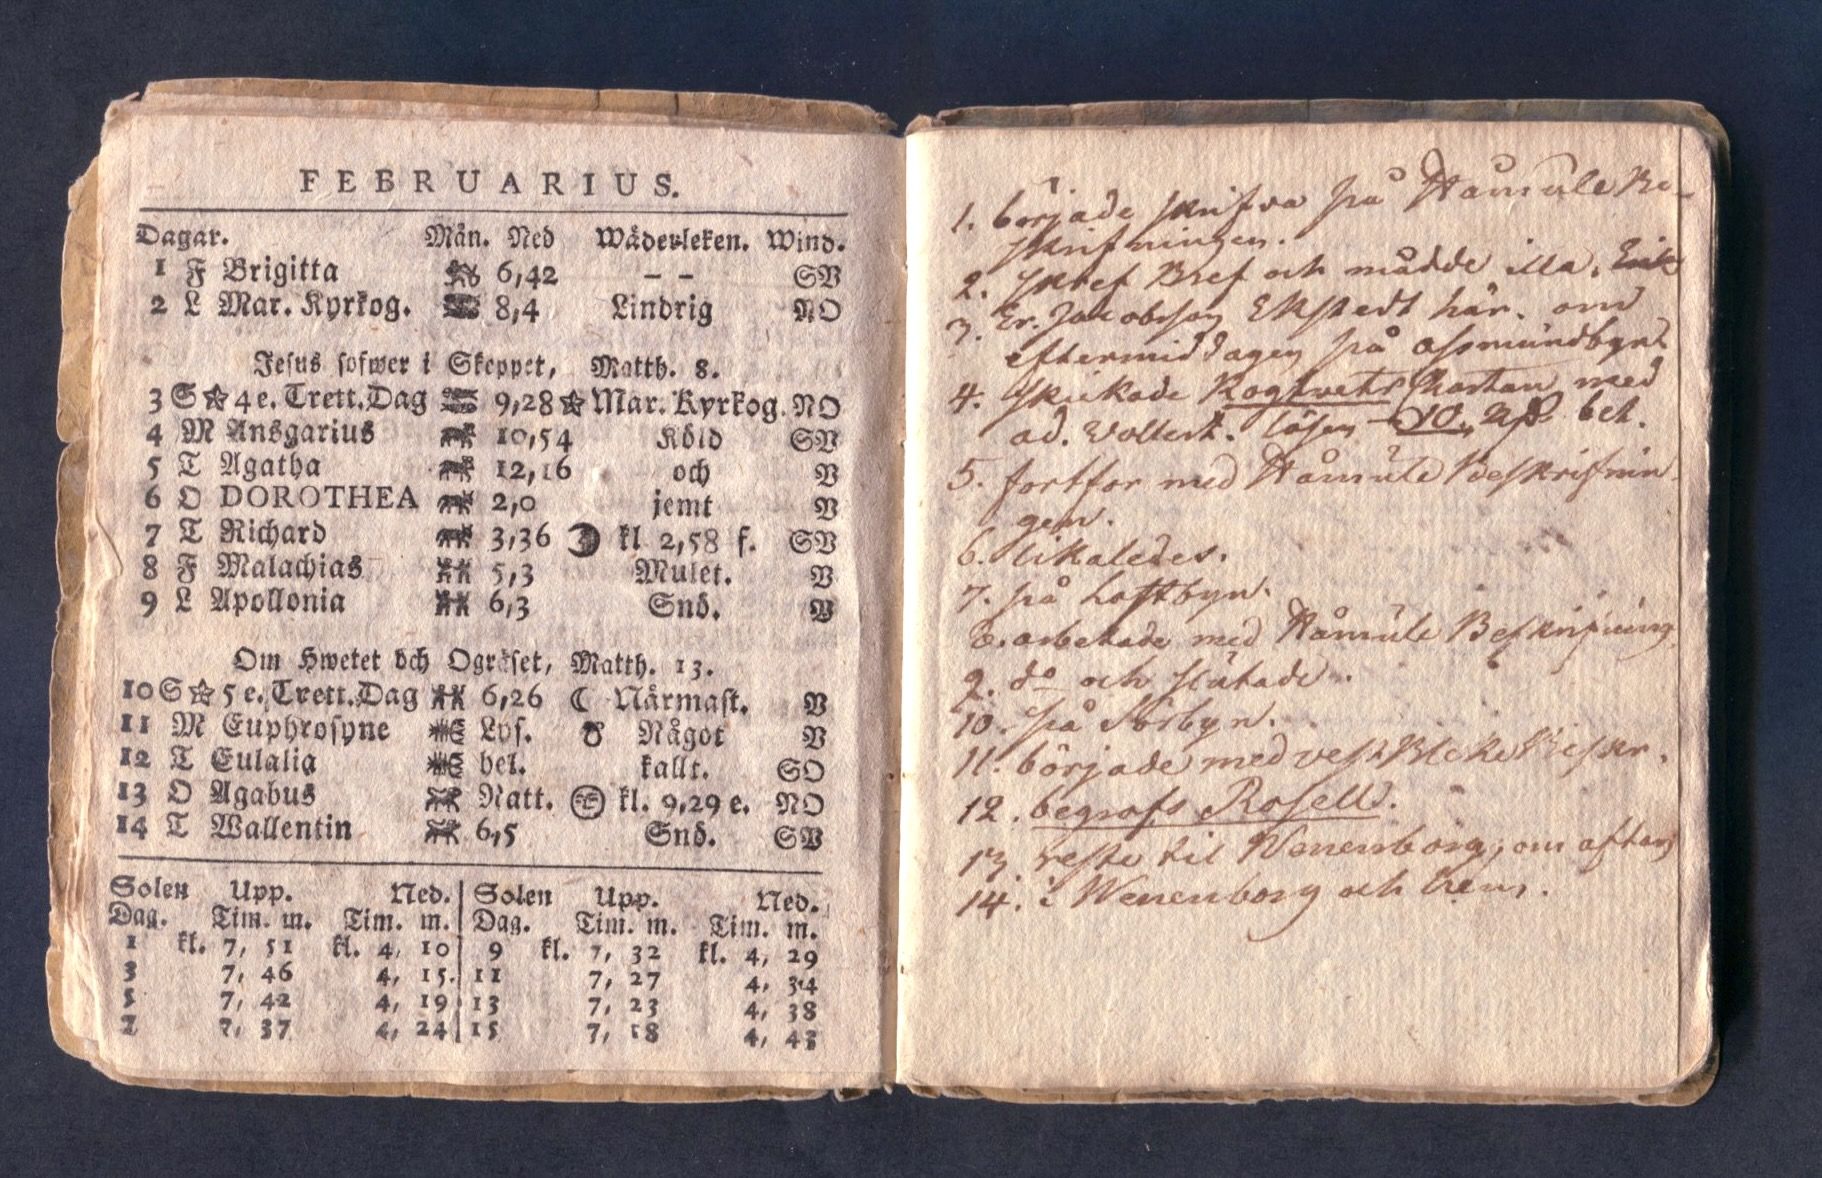 FEBRUARIUS.
Dagar. Mån. Ned Wäderleken. Wind.
1 F Brigitta 6,42 – – SV
2 L Mar. Kyrkog. 8,4 Lindrig NO
Jesus sofwer i Skeppet, Matth. 8.
3 S ☆ 4 e. Trett. Dag 9,28 ☆ Mar. Kyrkog. NO
4 M Ansgarius 10,54 Köld SV
5 T Agatha 12,16 och V
6 O DOROTHEA 2,0 jemt V
7 T Richard 3,36 ☾ kl 2,58 f. SV
8 F Malachias 5,3 Mulet. V
9 L Apollonia 6,3 Snö. V
Om Hwetet och Ogräset, Matth. 13.
10 S ☆ 5 e. Trett. Dag 6,26 ☾ Närmast. V
11 M Euphrosyne Lys. Något V
12 T Eulalia hel. kallt. SO
13 O Agabus Natt. kl. 9,29 e. NO
14 T Wallentin 6,5 Snö. SV
Solen Upp. Ned. Solen Upp. Ned.
Dag. Tim. m. Tim. m. Dag. Tim. m. Tim. m.
1 kl. 7, 51 kl. 4, 10 9 kl. 7, 32 kl. 4, 29
3 7, 46 4, 15. 11 7, 27 4, 34
5 7, 42 4, 19 13 7, 23 4, 38
7 7, 37 4, 24 15 7, 18 4, 43
1. började skrifva på Be-
skrifningen.
2. skref Bref och mådde illa.
3. Er. Jacobsson Ekstedt här. om
eftermiddagen på
4. skickade Chartan med
ad. lösen 10. bet.
5. fortfor med Beskrifnin
gen.
6. likaledes.
7. på Loftbyn.
8. arbetade med Beskrifning
9. do och slutade.
10. på Norbyn.
11. började med Beskr.
12. begrofs Rosell.
13. reste til Wenersborg, om aftonen
14. i Wenersborg och hem.